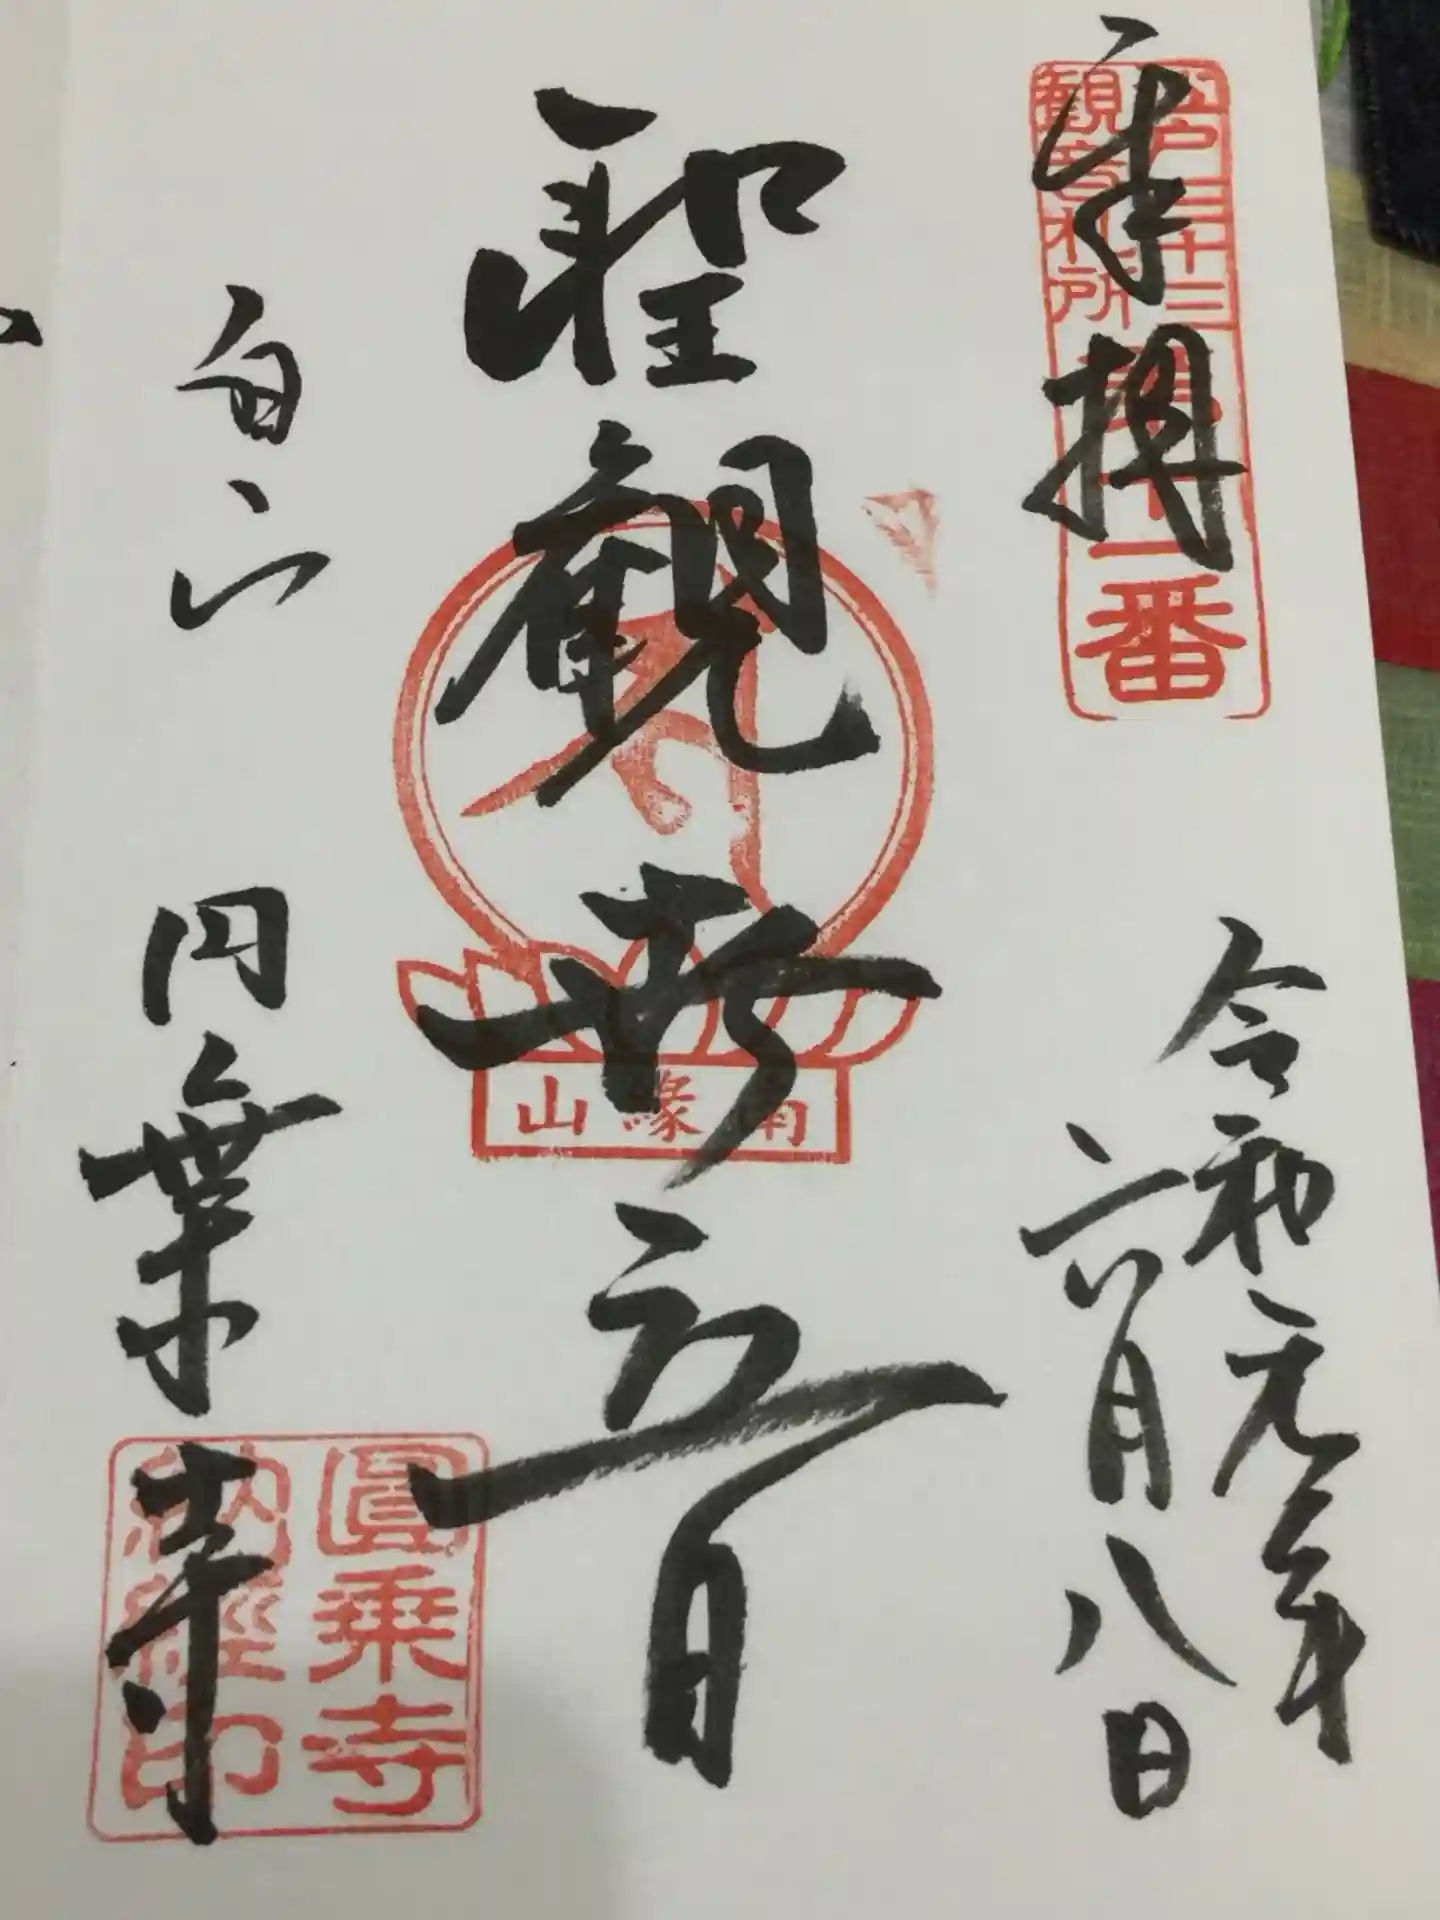 奉拝
江戸三十三
観音札所
第十一番
令和元年
六月八日
聖觀世音
南緣山
白山
円乗寺
圓乗寺
納經印